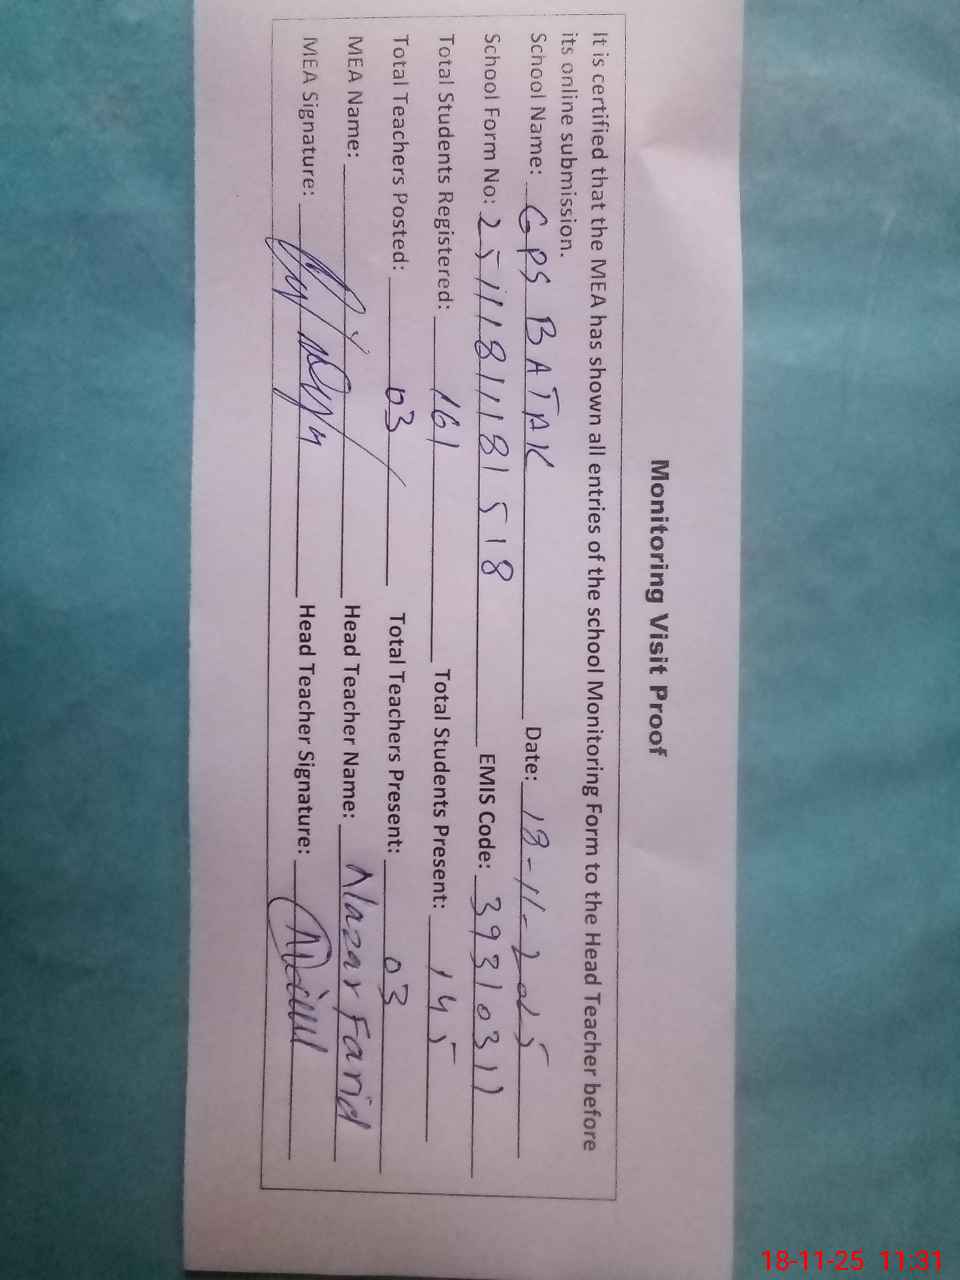 Monitoring Visit Proof
It is certified that the MEA has shown all entries of the school Monitoring Form to the Head Teacher before
its online submission.
School Name: GPS BATAK Date: 18-11-2025
School Form No: 25111811181518 EMIS Code: 39310311
Total Students Registered: 161 Total Students Present: 145
Total Teachers Posted: 03 Total Teachers Present: 03
MEA Name: Head Teacher Name: Nazar Farid
MEA Signature: Head Teacher Signature:
18-11-25 11:31